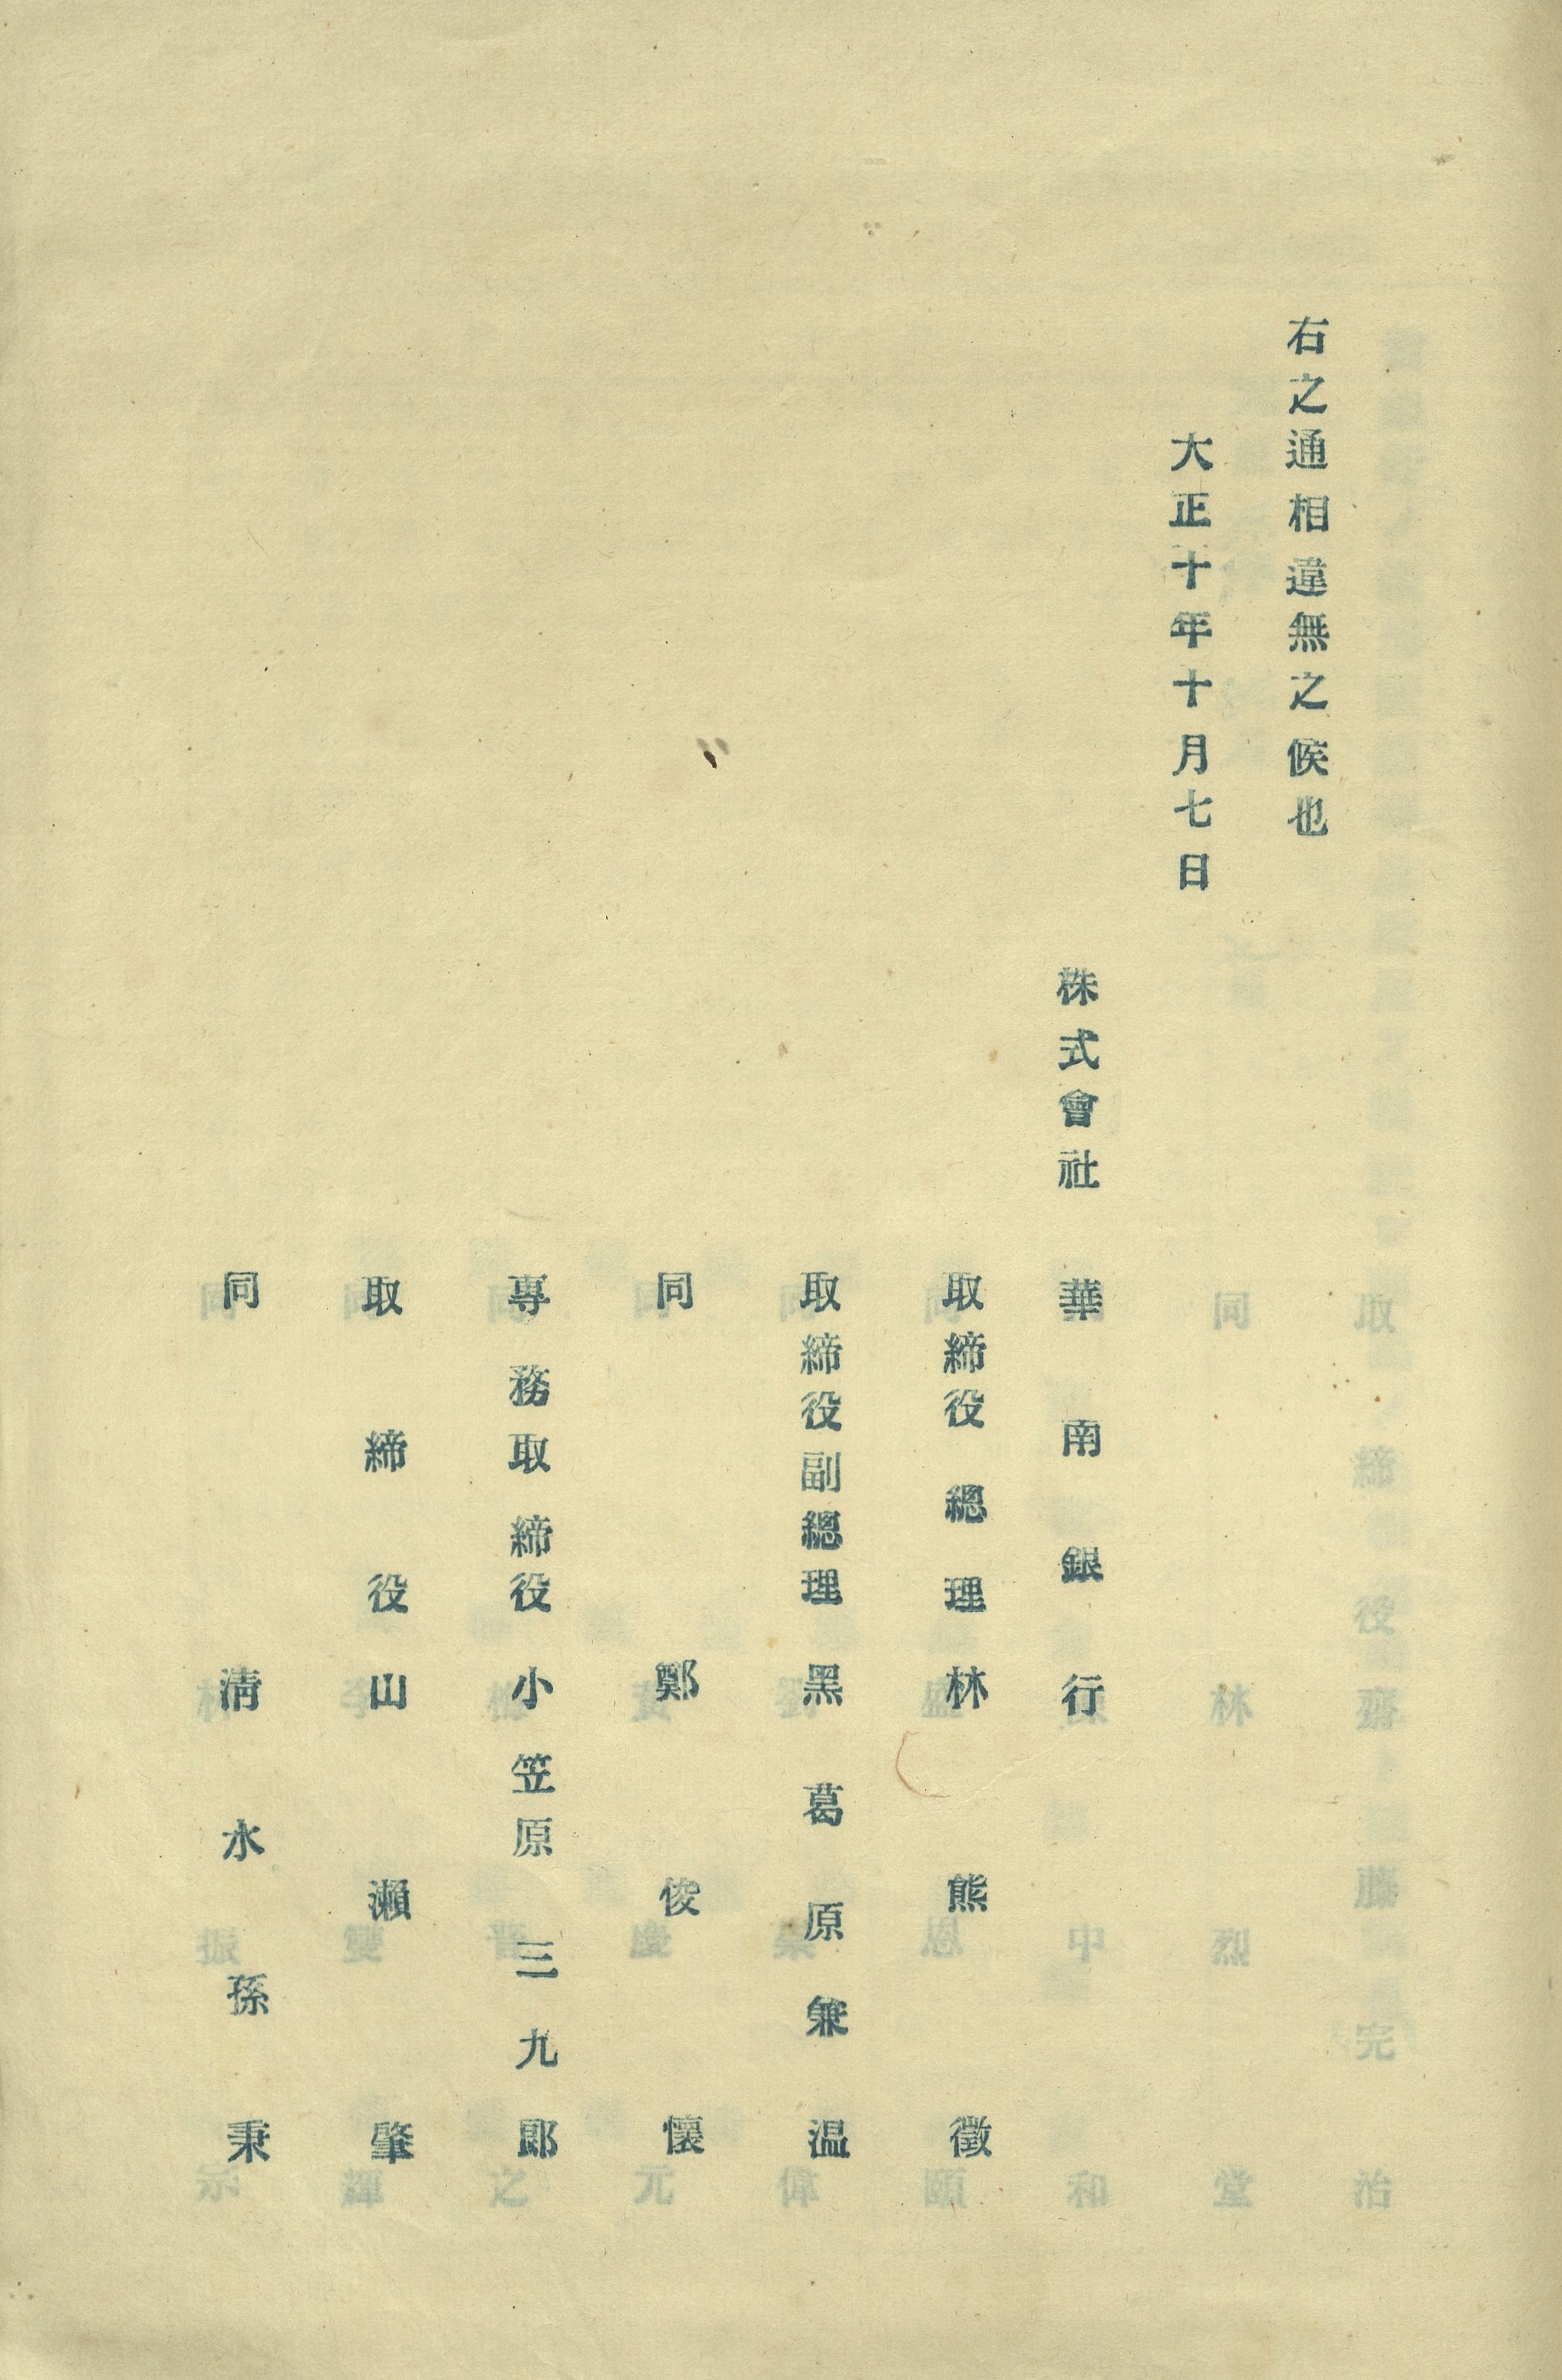 右之通相違無之候也
大正十年十月七日
株式會社 華南銀行
取締役總理 林熊徵
取締役副總理 黑葛原兼溫
同 鄭俊懷
專務取締役 小笠原三九郞
取締役 山瀨肇
同 淸水孫秉